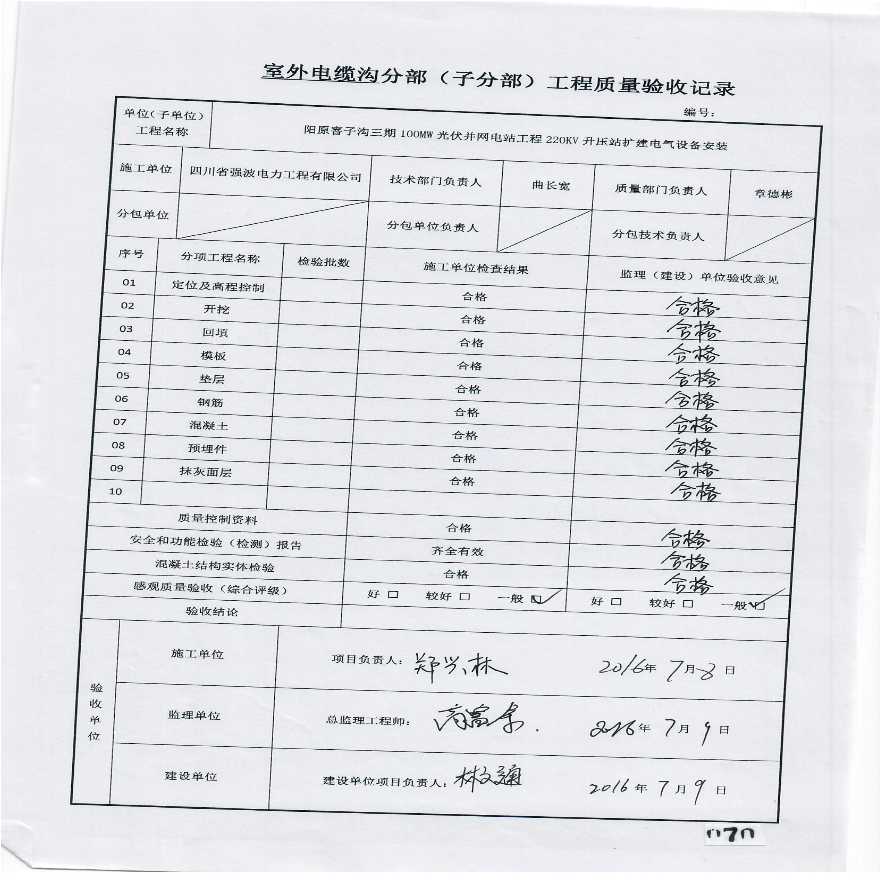 室外电缆沟分部（子分部）工程质量验收记录
编号：
单位（子单位）工程名称 阳原窖子沟三期100MW光伏并网电站工程220KV升压站扩建电气设备安装
施工单位 四川省强波电力工程有限公司 技术部门负责人 曲长宽 质量部门负责人 章德彬
分包单位 分包单位负责人 分包技术负责人
序号 分项工程名称 检验批数 施工单位检查结果 监理（建设）单位验收意见
01 定位及高程控制 合格 合格
02 开挖 合格 合格
03 回填 合格 合格
04 模板 合格 合格
05 垫层 合格 合格
06 钢筋 合格 合格
07 混凝土 合格 合格
08 预埋件 合格 合格
09 抹灰面层 合格 合格
10
质量控制资料 合格 合格
安全和功能检验（检测）报告 齐全有效 合格
混凝土结构实体检验 合格 合格
感观质量验收（综合评级） 好 □ 较好 □ 一般 ☑ 好 □ 较好 □ 一般 ☑
验收结论
验收单位
施工单位 项目负责人：郑兴林 2016年7月8日
监理单位 总监理工程师： 2016年7月9日
建设单位 建设单位项目负责人： 2016年7月9日
070